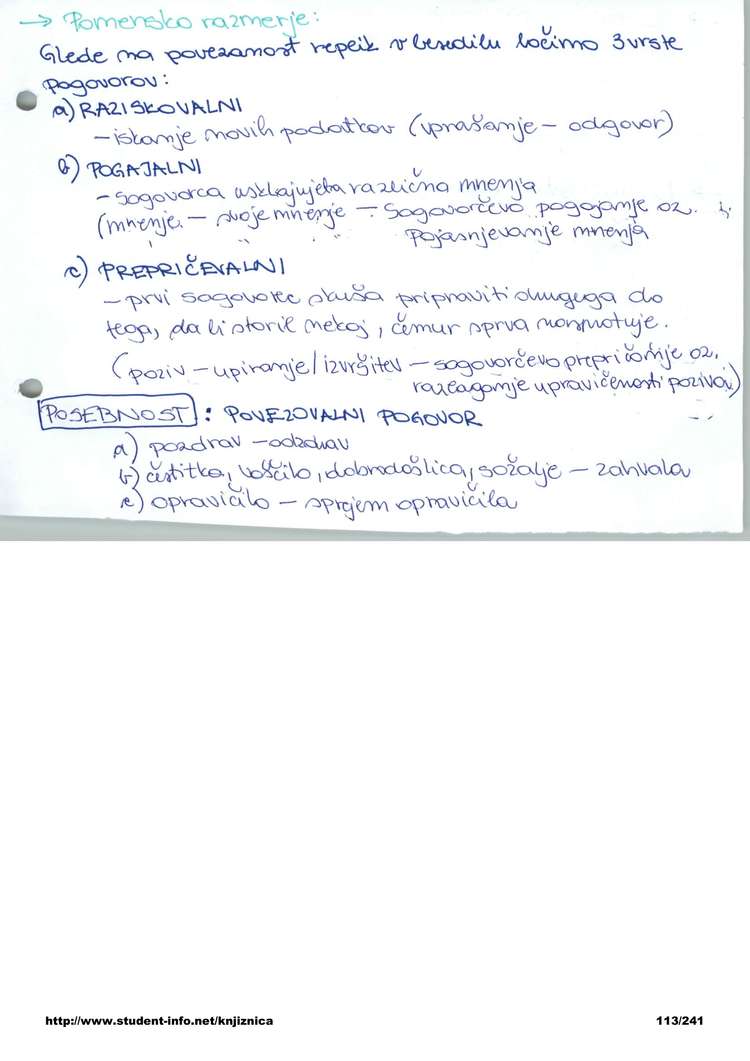 → Pomensko razmerje:
Glede na povezanost replik v besedilu ločimo 3 vrste
pogovorov:
a) RAZISKOVALNI
- iskanje novih podatkov (vprašanje - odgovor)
b) POGAJALNI
- sogovorca usklajujeta različna mnenja
(mnenje - svoje mnenje - sogovorčevo pogajanje oz.
pojasnjevanje mnenja
c) PREPRIČEVALNI
- prvi sogovorec skuša pripraviti drugega do
tega, da bi storil nekaj, čemur sprva nasprotuje.
(poziv - upiranje/izvršitev - sogovorčevo prepričanje oz.
razlaganje upravičenosti poziva)
POSEBNOST: POVEZOVALNI POGOVOR
a) pozdrav - odzdrav
b) čestitka, voščilo, dobrodošlica, sožalje - zahvala
c) opravičilo - sprejem opravičila
http://www.student-info.net/knjiznica 113/241